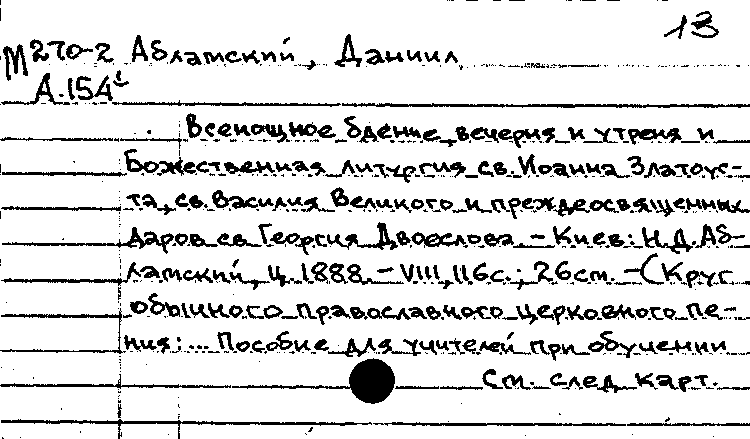 13
М270-2 Абламский, Даниил
А.154
Всенощное бдение, вечерня и утреня и
Божественная литургия св. Иоанна Златоус-
та, св. Василия Великого и преждеосвященных
даров св. Георгия Двоеслова. - Киев: Н.Д. Аб-
ламский, ц. 1888. - VIII, 116с.; 26см. - (Круг
обычного православного церковного пе-
ния:... Пособие для учителей при обучении
См. след. карт.